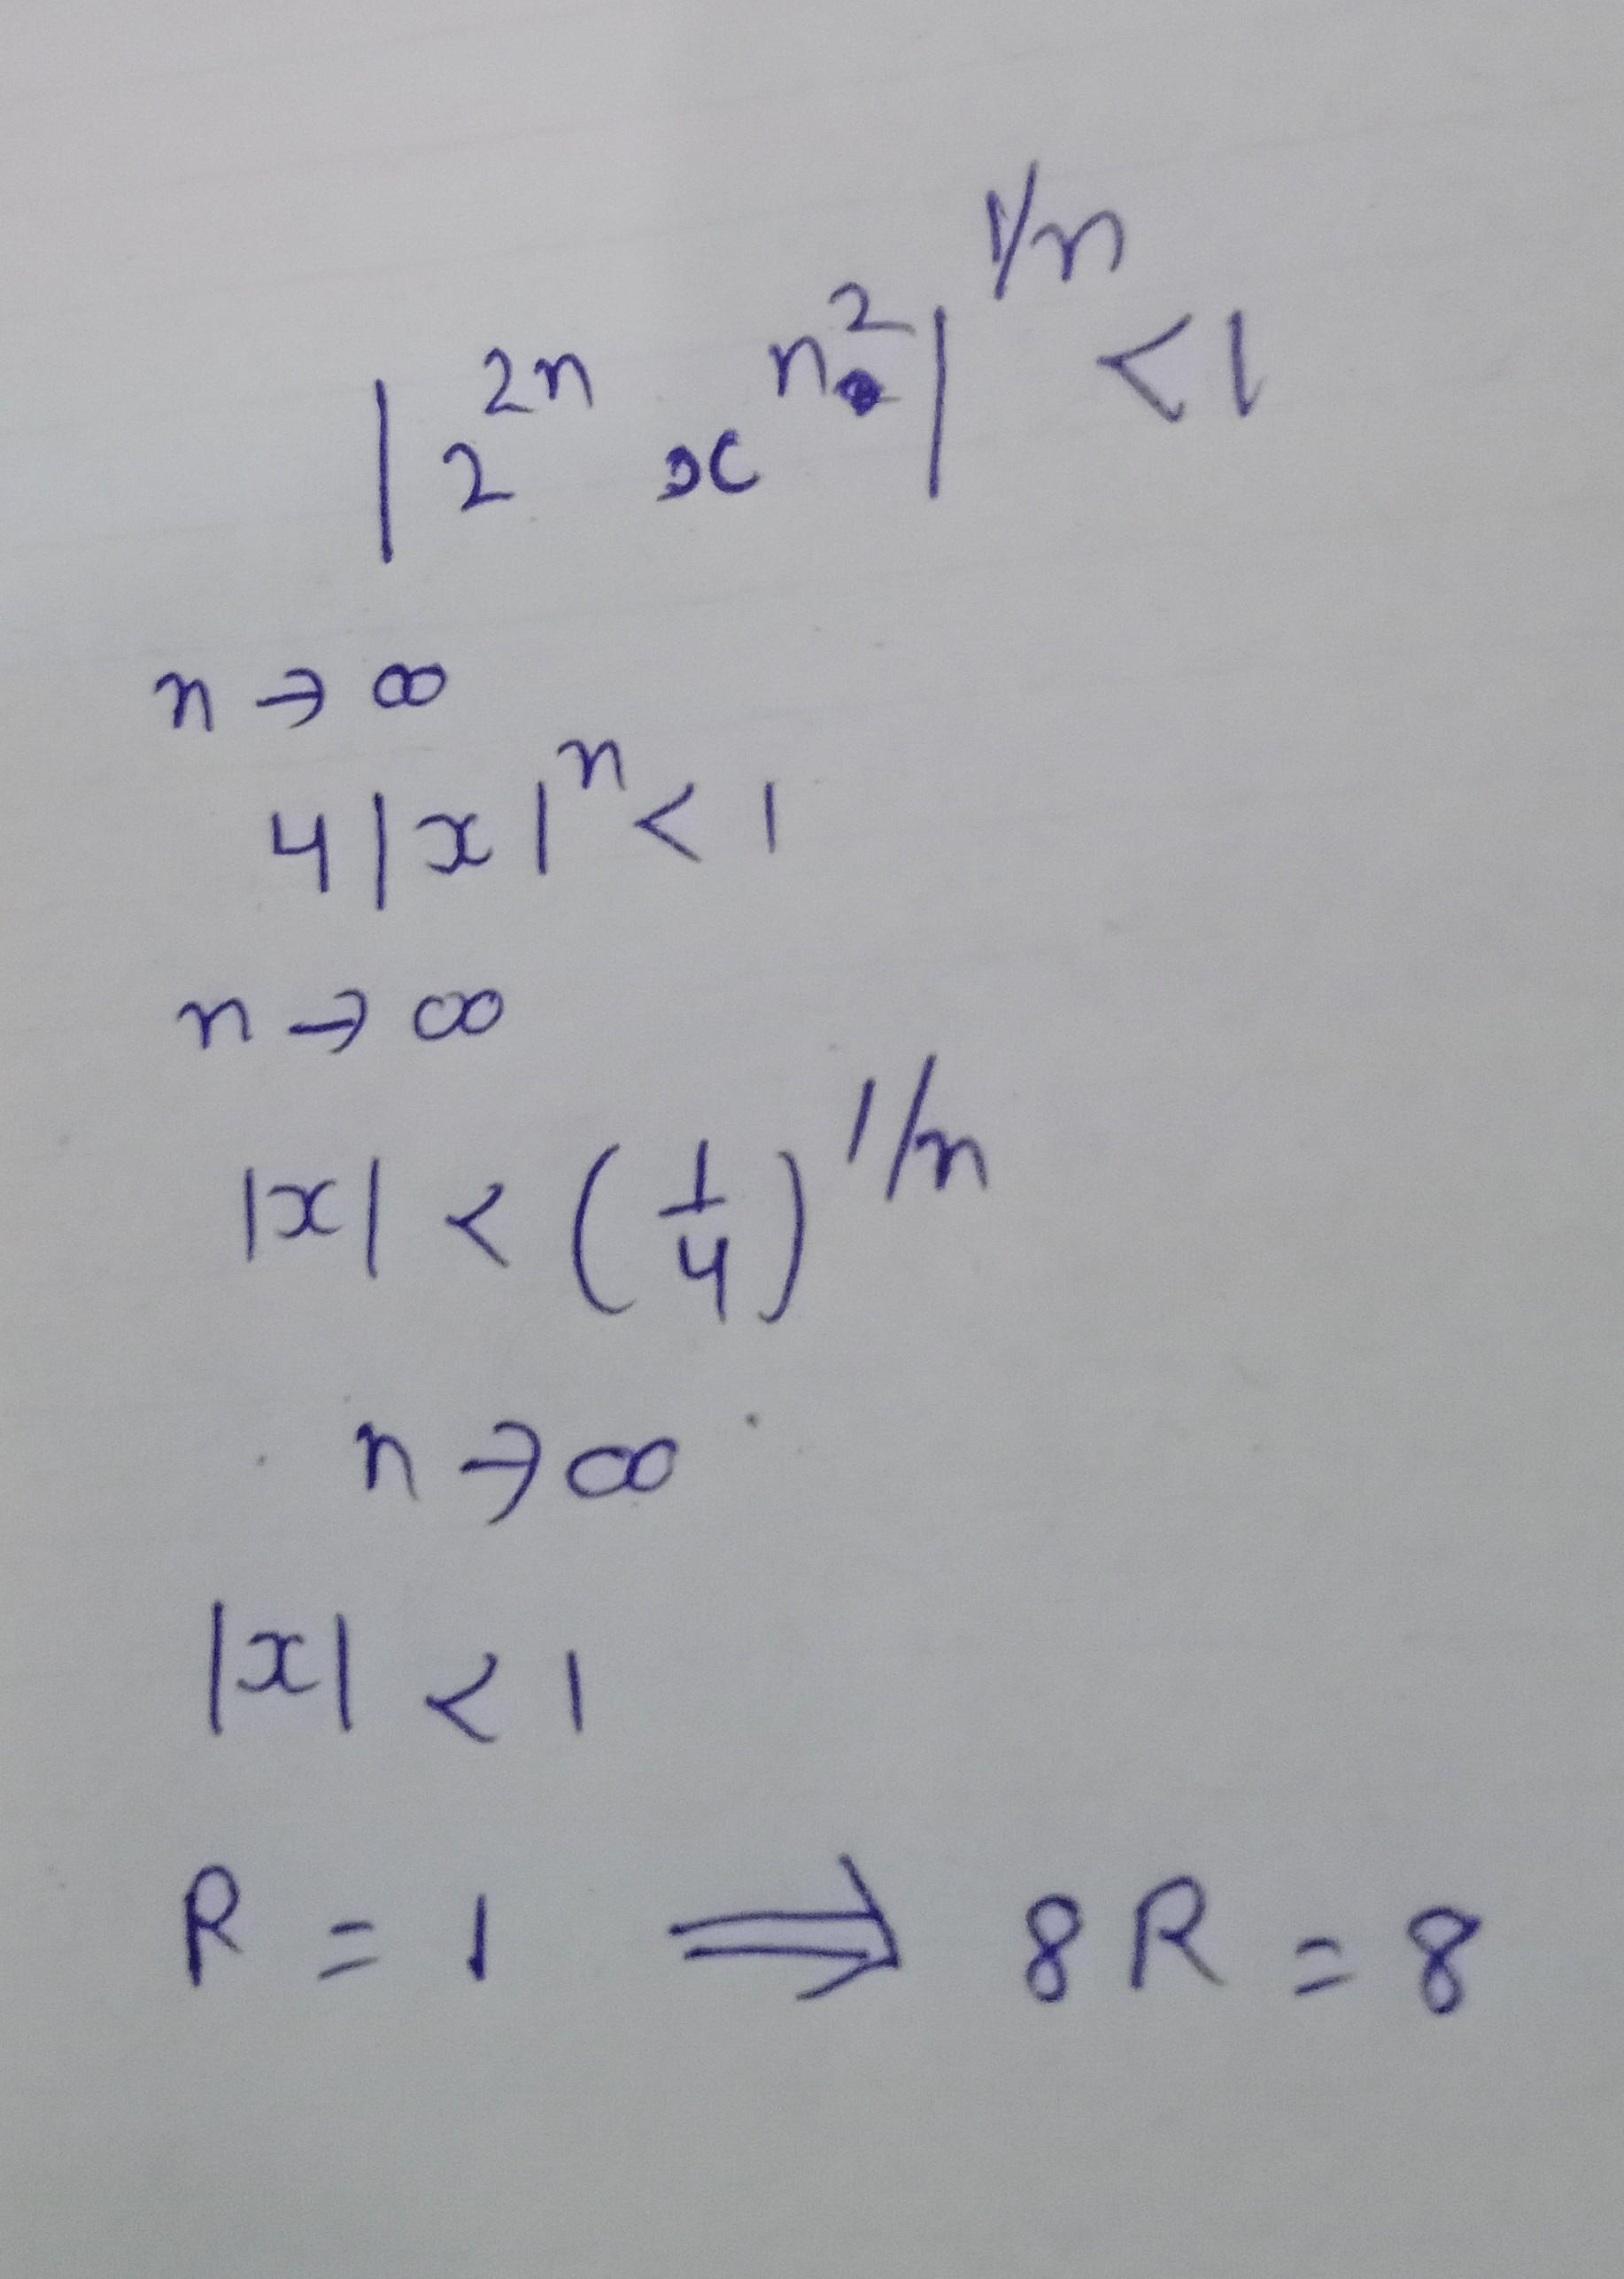 |2^{2n} x^{n^2}|^{1/n} < 1
n → ∞
4|x|^n < 1
n → ∞
|x| < (1/4)^{1/n}
n → ∞
|x| < 1
R = 1 ⟹ 8R = 8